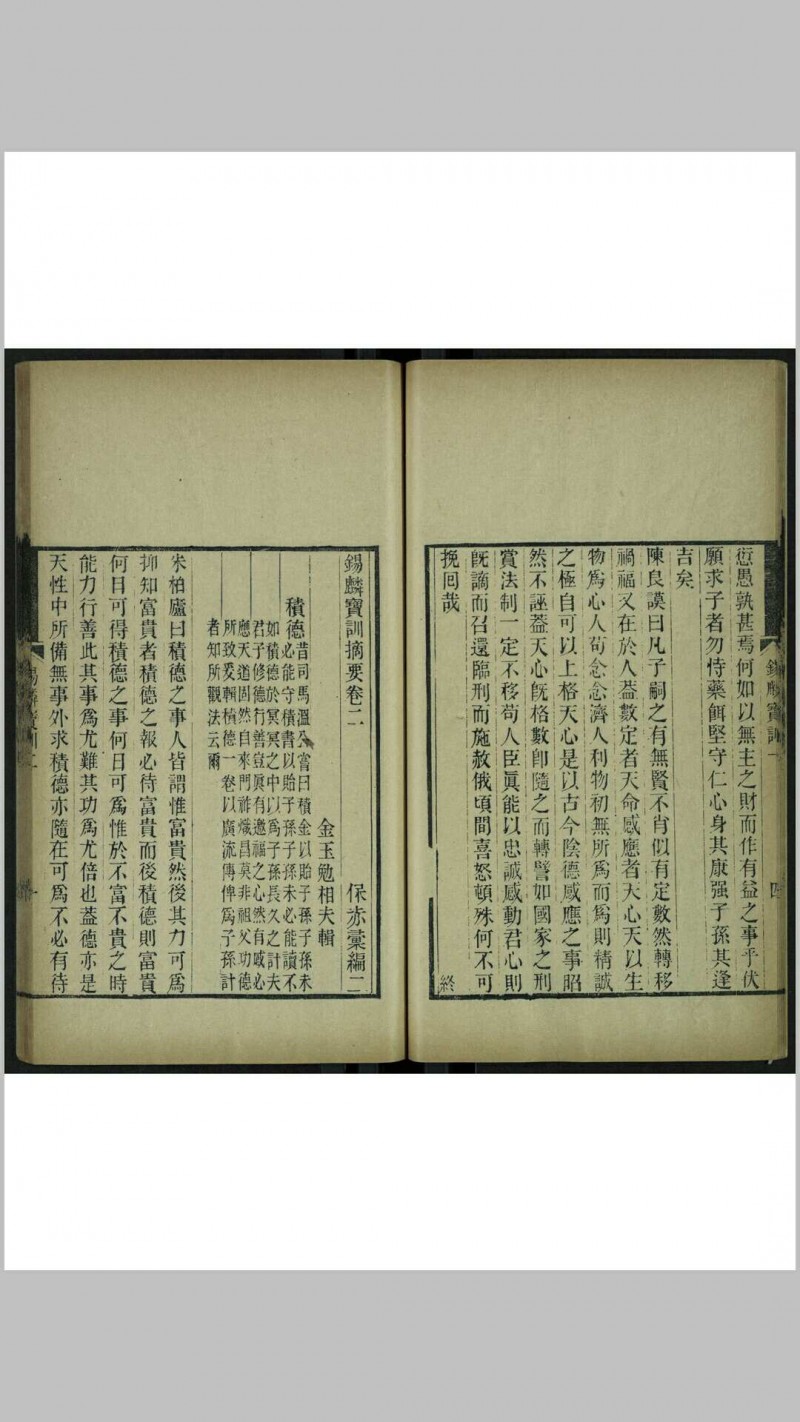 愆愚孰甚焉何如以無主之財而作有益之事乎伏
願求子者勿恃藥餌堅守仁心身其康强子孫其逢
吉矣
陳良謨曰凡子嗣之有無賢不肖似有定數然轉移
禍福又在於人葢數定者天命感應者天心天以生
物爲心人苟念念濟人利物初無所爲而爲則精誠
之極自可以上格天心是以古今陰德感應之事昭
然不誣葢天心旣格數卽隨之而轉譬如國家之刑
賞法制一定不移苟人臣眞能以忠誠感動君心則
旣謫而召還臨刑而施赦俄頃間喜怒頓殊何不可
挽回哉
終
錫麟寶訓摘要卷二
保赤彙編二
金玉勉相夫輯
積德
昔司馬溫公嘗曰積金以貽子孫子孫未
必能守積書以貽子孫子孫未必能讀不
如積德於冥冥之中以爲子孫長久之計夫
君子修德行善豈眞有邀福之心然有感必
應天道固然自來門祚熾昌莫非祖父功德
所致爰輯積德一卷以廣流傳俾爲子孫計
者知所觀法云爾
朱柏廬曰積德之事人皆謂惟富貴然後其力可爲
抑知富貴者積德之報必待富貴而後積德則富貴
何日可得積德之事何日可爲惟於不富不貴之時
能力行善此其事爲尤難其功爲尤倍也葢德亦是
天性中所備無事外求積德亦隨在可爲不必有待